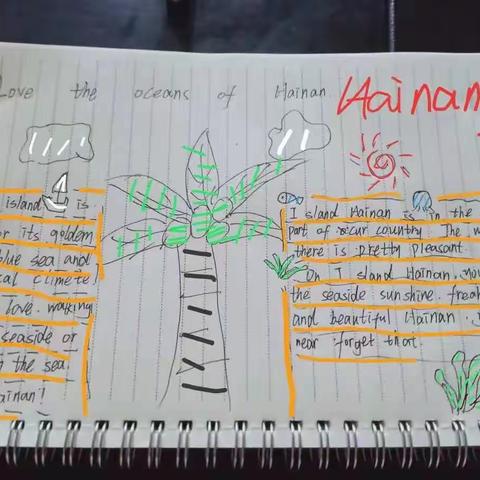 Love the oceans of Hainan
Hainan
island is
or its goldem
blue sea and
cal climete
love walking
seaside or
n the sea
ainan!
I sland Hainan is in the
part of our country. The w
there is pretty pleasant
On I sland Hainan, you
the seaside sunshine. freah
and beautiful Hainan.
near forget that.